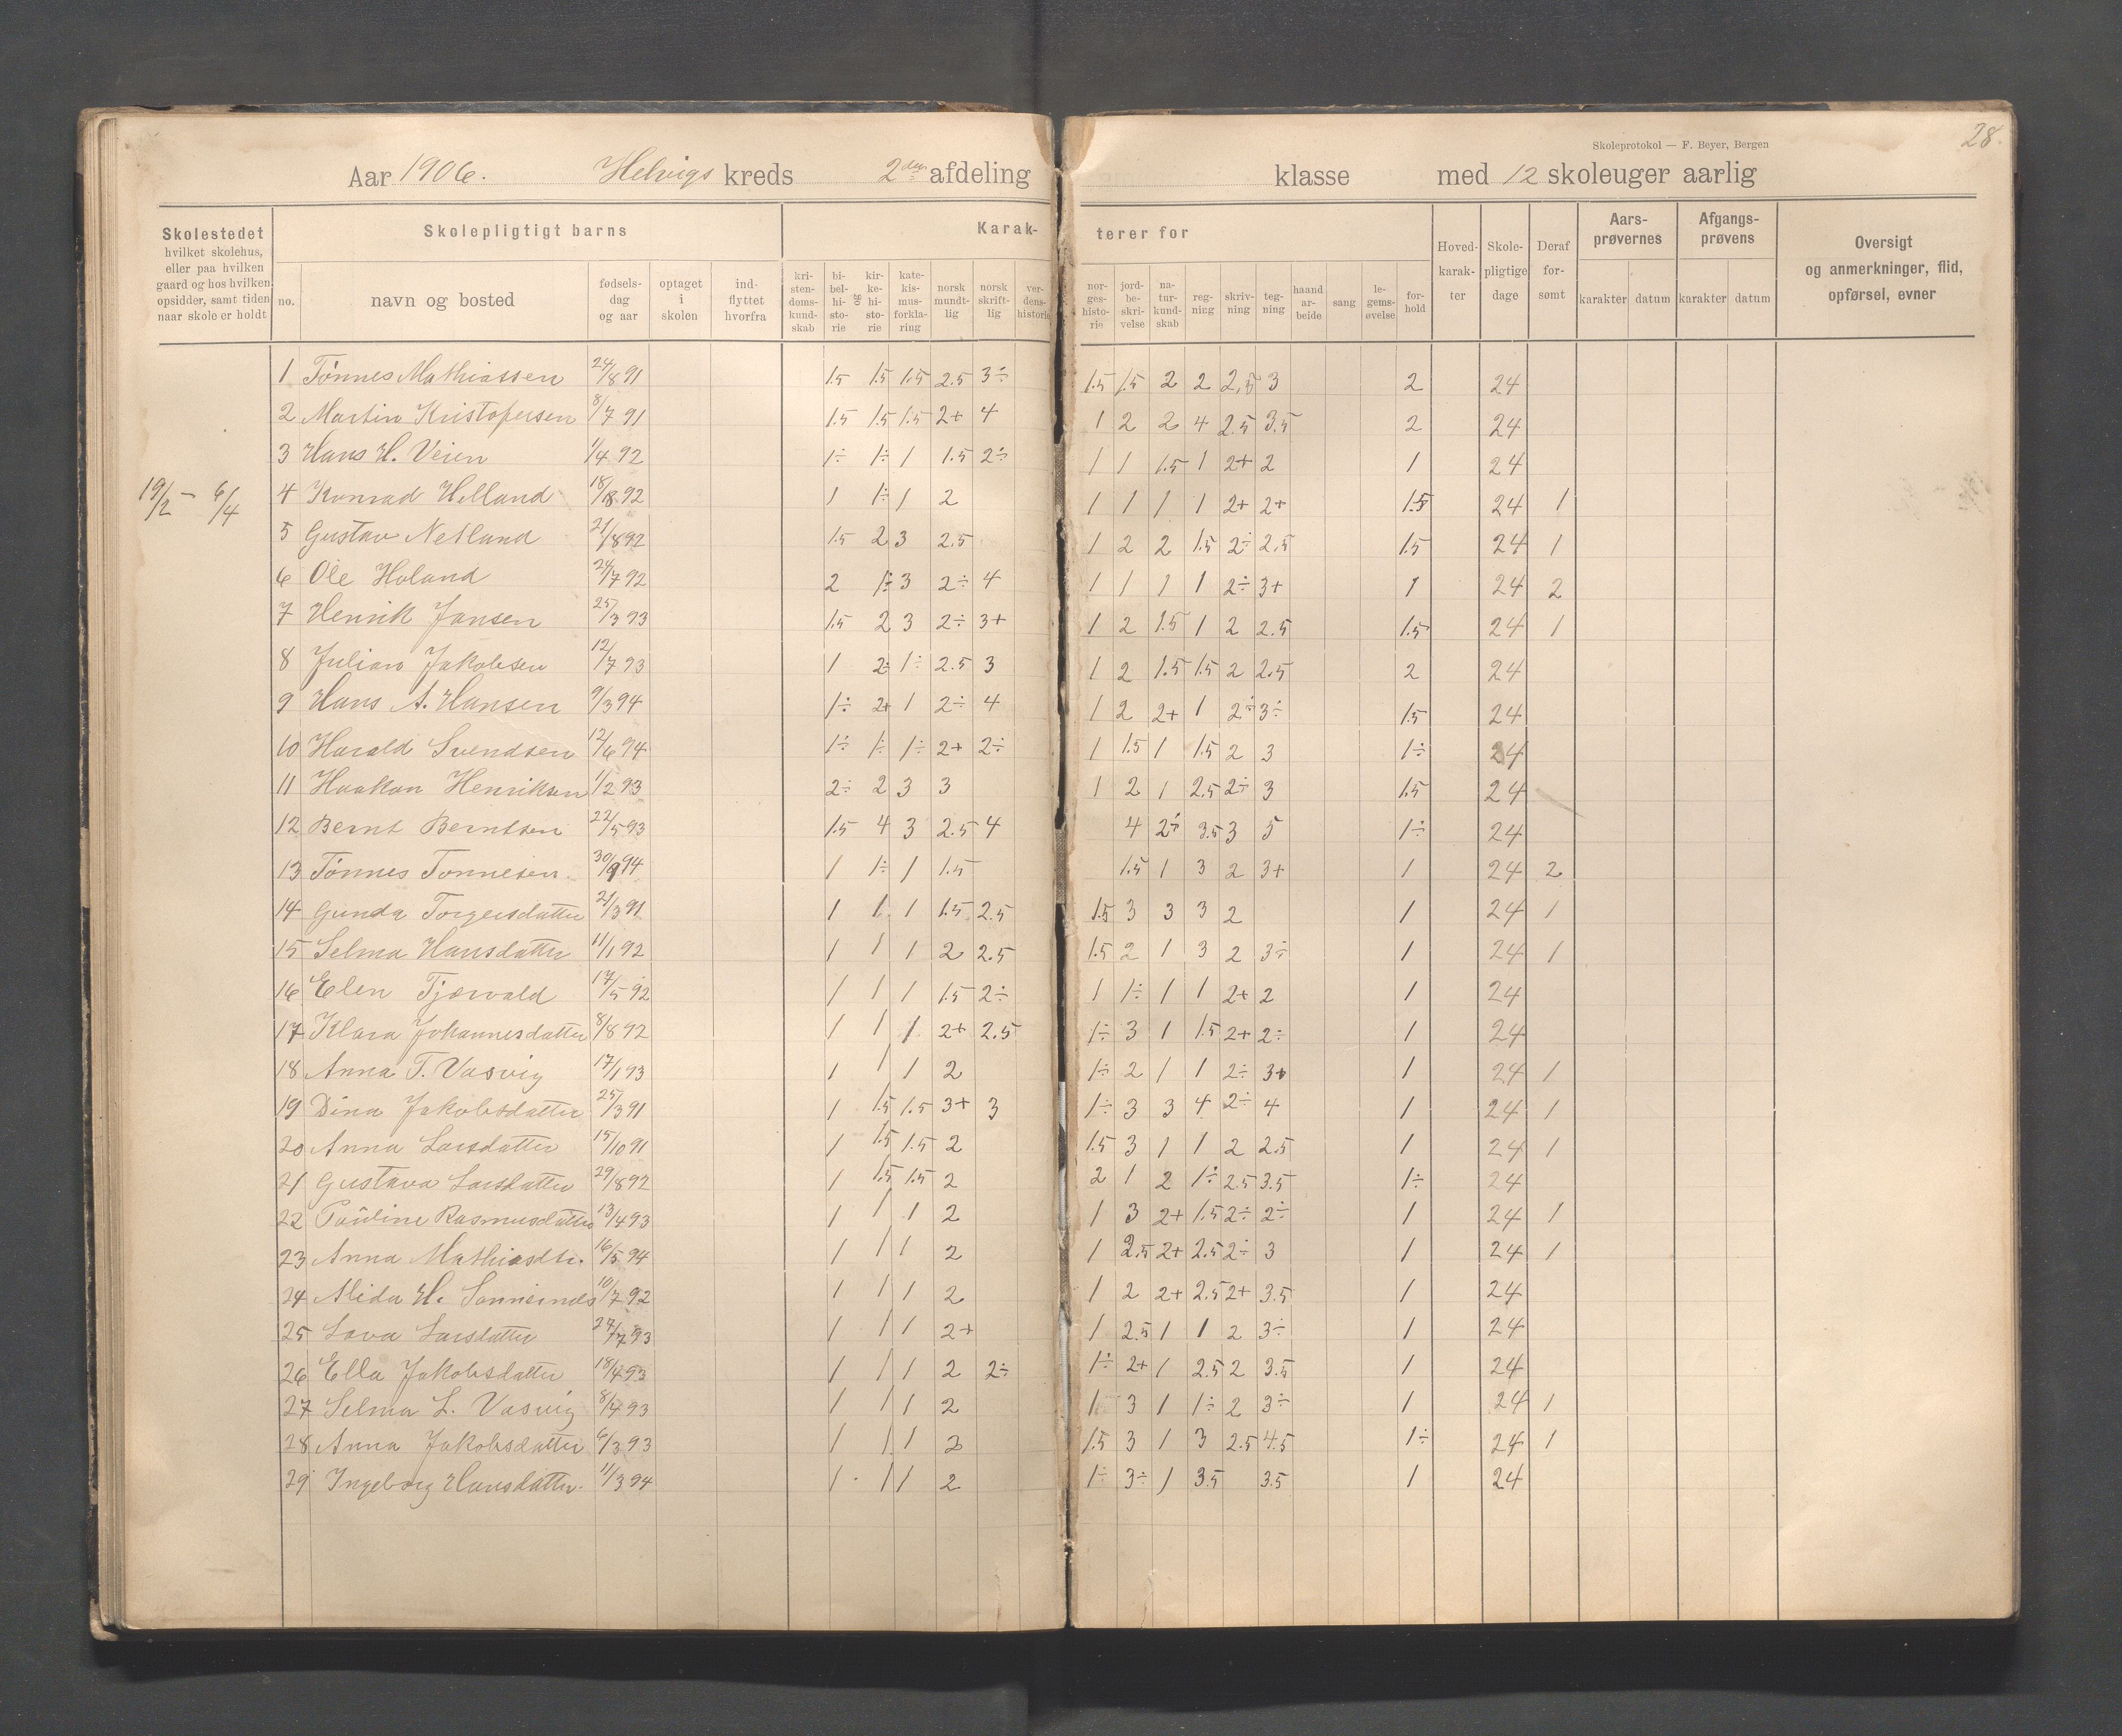 28.
Skoleprotokol — F. Beyer, Bergen
Aar 1906. Helvigs kreds 2den afdeling klasse med 12 skoleuger aarlig
Skolestedet hvilket skolehus, eller paa hvilken gaard og hos hvilken opsidder, samt tiden naar skole er holdt
Skolepligtigt barns
Karakterer for
no. navn og bosted fødselsdag og aar optaget i skolen indflyttet hvorfra
kristendomskundskab bibelhistorie kirkehistorie katekismusforklaring norsk mundtlig norsk skriftlig verdenshistorie
norgeshistorie jordbeskrivelse naturkundskab regning skrivning tegning haandarbeide sang legemsøvelse forhold
Hovedkarakter Skolepligtige dage Deraf forsømt
Aarsprøvernes karakter datum
Afgangsprøvens karakter datum
Oversigt og anmerkninger, flid, opførsel, evner
19/2 – 6/4
1 Tönnes Mathiassen 24/8 91 1.5 1.5 1.5 2.5 3÷ 1.5 1.5 2 2 2.5 3 2 24
2 Martin Kristofersen 8/7 91 1.5 1.5 1.5 2+ 4 1 2 2 4 2.5 3.5 2 24
3 Hans H. Veien 1/4 92 1÷ 1÷ 1 1.5 2÷ 1 1 1.5 1 2+ 2 1 24
4 Konrad Helland 18/8 92 1 1÷ 1 2 1 1 1 1 2+ 2+ 1.5 24 1
5 Gustav Netland 21/8 92 1.5 2 3 2.5 1 2 2 1.5 2÷ 2.5 1.5 24 1
6 Ole Holand 24/7 92 2 1÷ 3 2÷ 4 1 1 1 1 2÷ 3+ 1 24 2
7 Henrik Jansen 25/3 93 1.5 2 3 2÷ 3+ 1 2 1.5 1 2 2.5 1.5 24 1
8 Julian Jakobsen 12/7 93 1 2÷ 1÷ 2.5 3 1 2 1.5 1.5 2 2.5 2 24
9 Hans A. Hansen 9/3 94 1÷ 2+ 1 2÷ 4 1 2 2+ 1 2÷ 3÷ 1.5 24
10 Harald Svendsen 12/6 94 1÷ 1÷ 1÷ 2+ 2÷ 1 1.5 1 1.5 2 3 1÷ 24
11 Haakon Henriksen 1/2 93 2÷ 2 3 3 1 2 1 2.5 2÷ 3 1.5 24
12 Bernt Berntsen 22/5 93 1.5 4 3 2.5 4 4 2÷ 3.5 3 5 1÷ 24
13 Tönnes Tonnesen 30/9 94 1 1÷ 1 1.5 1.5 1 3 2 3+ 1 24 2
14 Gunda Torgersdatter 21/3 91 1 1 1 1.5 2.5 1.5 3 3 3 2 1 24 1
15 Selma Hansdatter 11/1 92 1 1 1 2 2.5 1.5 2 1 3 2 3÷ 1 24 1
16 Elen Tjærvald 17/5 92 1 1 1 1.5 2÷ 1 1÷ 1 1 2+ 2 1 24
17 Klara Johannesdatter 8/8 92 1 1 1 2+ 2.5 1÷ 3 1 1.5 2+ 2÷ 1 24
18 Anna T. Vasvig 17/1 93 1 1 1 2 1÷ 2 1 1 2÷ 3+ 1 24 1
19 Dina Jakobsdatter 25/3 91 1 1.5 1.5 3+ 3 1÷ 3 3 4 2÷ 4 1 24 1
20 Anna Larsdatter 15/10 91 1 1.5 1.5 2 1.5 3 1 1 2 2.5 1 24 1
21 Gustava Larsdatter 29/8 92 1 1.5 1.5 2 2 1 2 1÷ 2.5 3.5 1÷ 24
22 Pauline Rasmusdatter 13/4 93 1 1 1 2 1 3 2+ 1.5 2÷ 2÷ 1 24 1
23 Anna Mathiasdtr. 16/5 94 1 1 1 2 1 2.5 2+ 2.5 2÷ 3 1 24 1
24 Alida H. 10/7 92 1 1 1 2 1 2 2+ 2.5 2+ 3.5 1 24
25 Lava Larsdatter 27/7 93 1 1 1 2+ 1 2.5 1 1 2 3÷ 1 24
26 Ella Jakobsdatter 18/4 93 1 1 1 2 2÷ 1÷ 2+ 1 2.5 2 3.5 1 24
27 Selma L. Vasvig 8/4 93 1 1 1 2 1 3 1 1÷ 2 3÷ 1 24 1
28 Anna Jakobsdatter 6/3 93 1 1 1 2 1.5 3 1 3 2.5 4.5 1÷ 24 1
29 Ingeborg Hansdatter 11/3 94 1 1 1 2 1÷ 3÷ 1 3.5 3.5 1 24